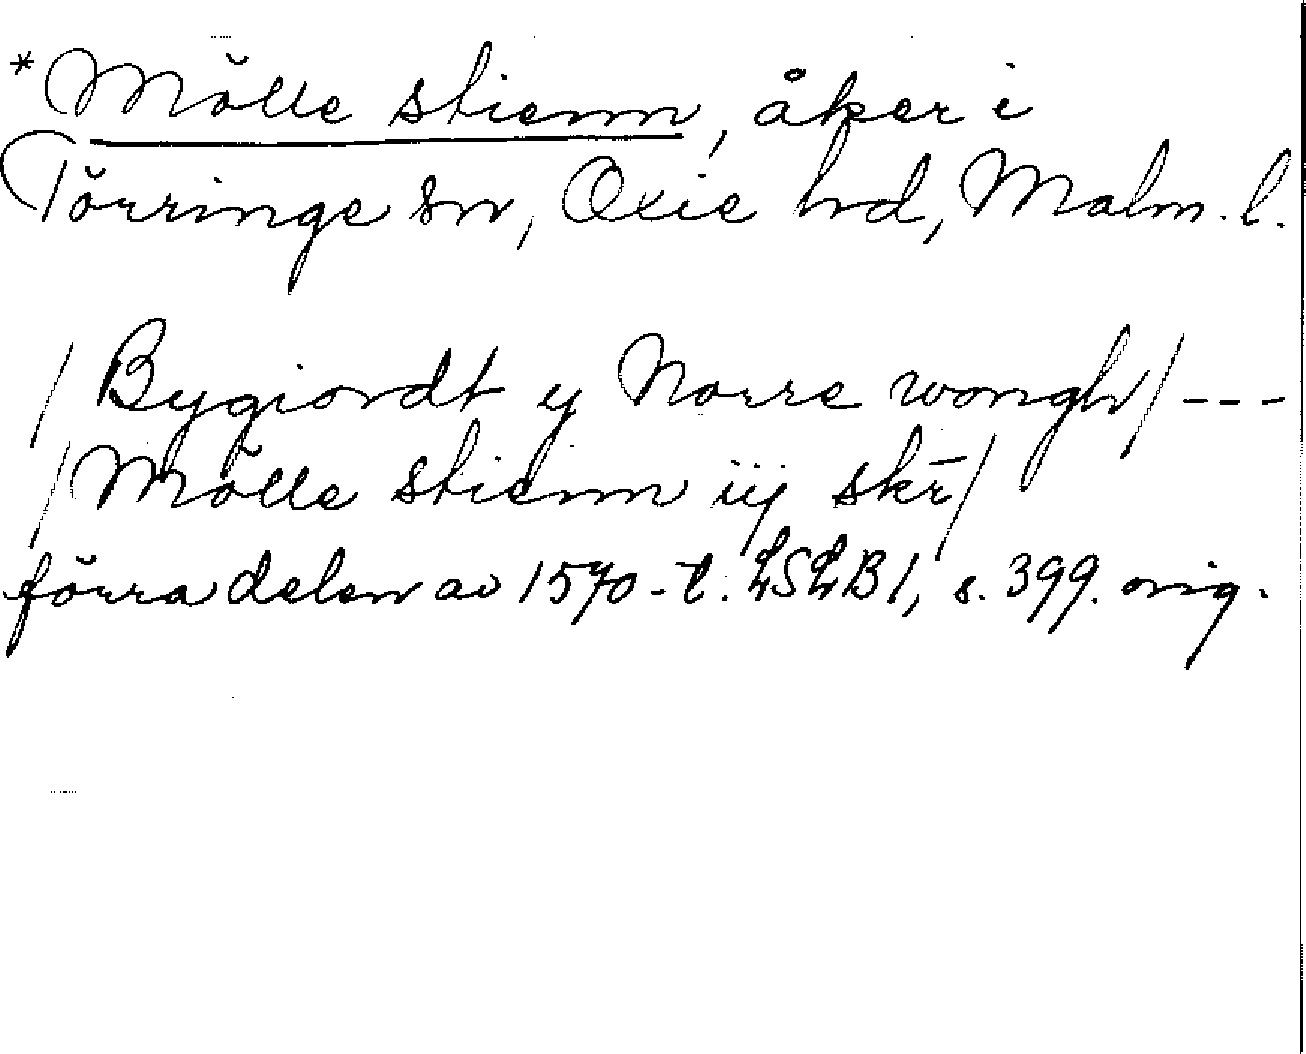 *Mölle stienn, åker i
Törringe sn, Oxie hd, Malm. l.
/Bygiordt y Norre wongh/ ---
/Mölle stienn iij skr̄/
förra delen av 1570-t. LSLB 1, s. 399. orig.